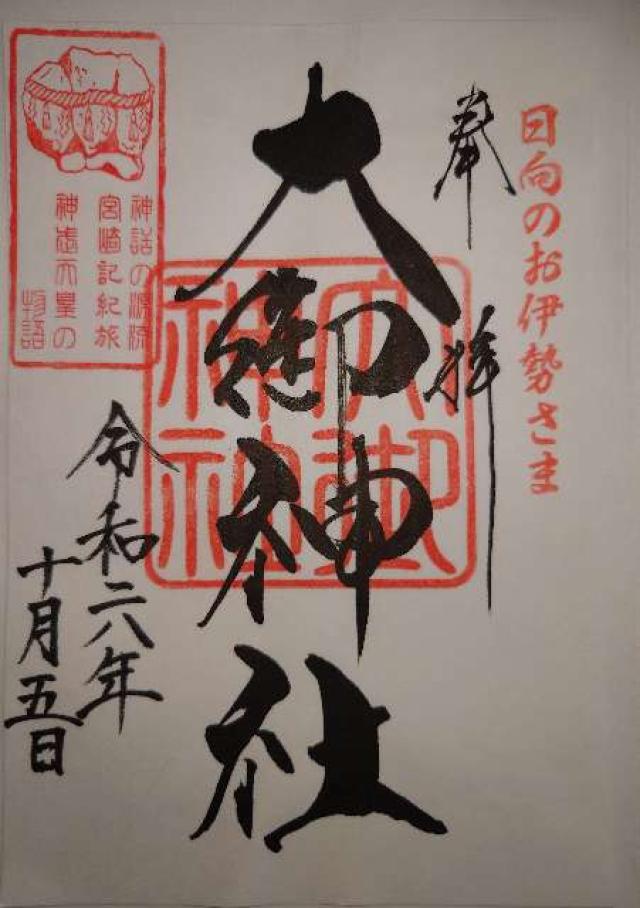 日向のお伊勢さま
奉拝
大御神社
大御神社
神話の源流
宮崎記紀旅
神武天皇の
物語
令和六年
十月五日